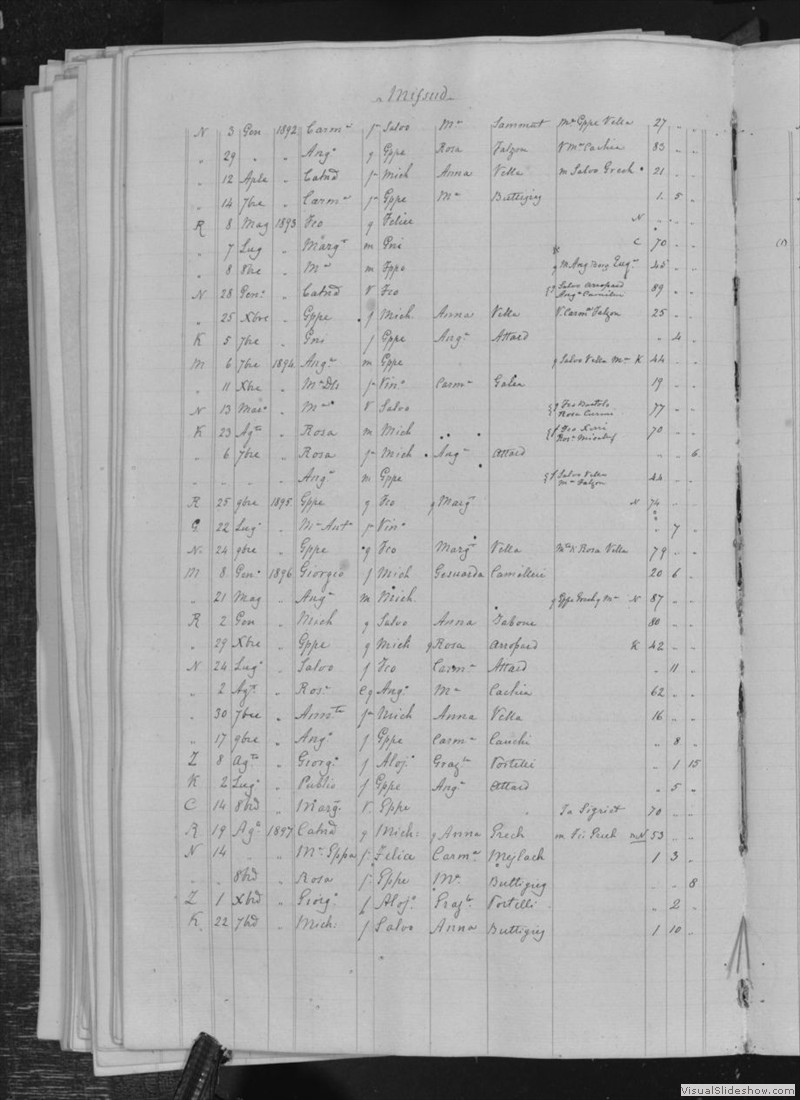 Mifsud
N 3 Gen 1892 Carmª f Salvo Mª Sammut Mª Gppe Vella 27 " "
" 29 " " Angª q Gppe Rosa Falzon V Mª Cachia 83 " "
" 12 Aple " Catnd f Mich Anna Vella m Salvo Grech 21 " "
" 14 7bre " Carmª f Gppe Mª Buttigieg 1 5 "
R 8 Mag 1893 Fco q Felice N " " "
" 7 Lug " Margª m Gni C 70 " "
" 8 8bre " Mª m Gppe q M Ang Eugª 45 " "
N 28 Genº " Catnd V Fco Salvo Arropard 89 " "
Angª Camilleri
" 25 Xbre " Gppe f Mich Anna Vella V Carmª Falzon 25 " "
K 5 7bre " Gni f Gppe Angª Attard " 4 "
M 6 7bre 1894 Angª m Gppe q Salvo Vella Mª K 44 " "
" 11 Xbre " Mª Dls f Vinº Carmª Galea 19 " "
N 13 Mar " Mª V Salvo Fco Bartolo 77 " "
Rosa
K 23 Agº " Rosa m Mich 70 " "
" 6 7bre " Rosa f Mich Angª Attard " " 6
" " " " Angª m Gppe Salvo Vella 44 " "
Mª Falzon
R 25 9bre 1895 Gppe q Fco q Margª N 74 " "
G 22 Lugº " Mª Ant f Vinº " 7 "
N 24 9bre " Gppe q Fco Margª Vella Mª K Rosa Vella 79 " "
M 8 Genº 1896 Giorgio f Mich Gesuarda Camilleri 20 6 "
" 21 Mag " Angª m Mich q Gppe Mª N 87 " "
R 2 Gen " Mich q Salvo Anna Zabone 80 " "
" 29 Xbre " Gppe q Mich q Rosa Arropard K 42 " "
N 24 Lugº " Salvo f Fco Carmª Attard " 11 "
" 2 Agº " Rosª Cq Angº Mª Cachia 62 " "
" 30 7bre " Annta f Mich Anna Vella 16 " "
" 17 9bre " Angº f Gppe Carmª Cauchi " 8 "
Z 8 Agº " Giorgº f Alojº Grazª Portelli " 1 15
K 2 Lugº " Publio f Gppe Angª Attard " 5 "
C 14 8bd " Margª V Gppe 70 " "
R 19 Agº 1897 Catnd q Mich: q Anna Grech m Grech m N 53 " "
N 14 " " Mª Gppa f Felice Carmª Mejlach 1 3 "
" " 8bd " Rosa f Gppe Mª Buttigieg " " 8
Z 1 Xbd " Giorgº f Alojº Grazª Portelli " 2 "
K 22 7bd " Mich: f Salvo Anna Buttigieg 1 10 "
(1)
VisualSlideshow.com